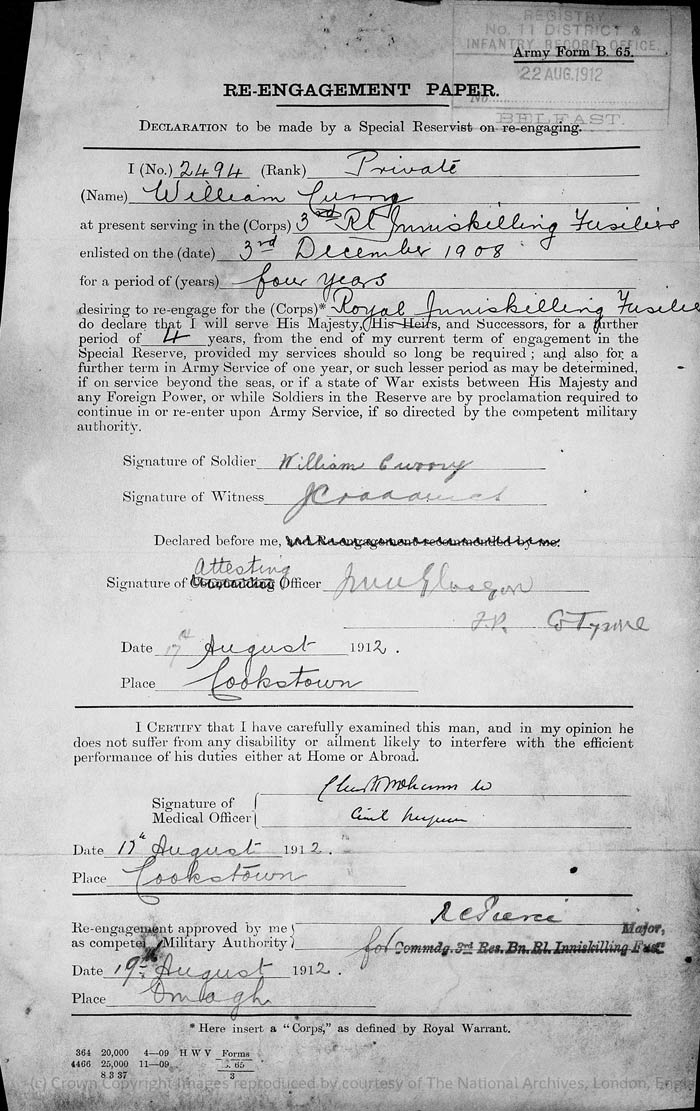 REGISTRY
No. 11 DISTRICT &
INFANTRY RECORD OFFICE.
Army Form B. 65.
22 AUG. 1912
No.
BELFAST.
RE-ENGAGEMENT PAPER.
DECLARATION to be made by a Special Reservist on re-engaging.
I (No.) 2494 (Rank) Private
(Name) William Curry
at present serving in the (Corps) 3rd Rl Inniskilling Fusiliers
enlisted on the (date) 3rd December 1908
for a period of (years) four years
desiring to re-engage for the (Corps)* Royal Inniskilling Fusilie
do declare that I will serve His Majesty, His Heirs, and Successors, for a further
period of 4 years, from the end of my current term of engagement in the
Special Reserve, provided my services should so long be required; and also for a
further term in Army Service of one year, or such lesser period as may be determined,
if on service beyond the seas, or if a state of War exists between His Majesty and
any Foreign Power, or while Soldiers in the Reserve are by proclamation required to
continue in or re-enter upon Army Service, if so directed by the competent military
authority.
Signature of Soldier William Curry
Signature of Witness
Declared before me, and Re-engagement recommended by me.
Attesting
Signature of Commanding Officer
J.P. Co Tyrone
Date 17th August 1912.
Place Cookstown
I CERTIFY that I have carefully examined this man, and in my opinion he
does not suffer from any disability or ailment likely to interfere with the efficient
performance of his duties either at Home or Abroad.
Signature of
Medical Officer
Date 17th August 1912.
Place Cookstown
Re-engagement approved by me
as competent Military Authority
Major,
for Commdg. 3rd Res. Bn. Rl. Inniskilling Fus.
Date 19th August 1912.
Place Omagh
* Here insert a "Corps," as defined by Royal Warrant.
364 20,000 4—09 H W V Forms
4466 25,000 11—09 B. 65
8 3 37 3
(c) Crown Copyright Images reproduced by courtesy of The National Archives, London, Engla